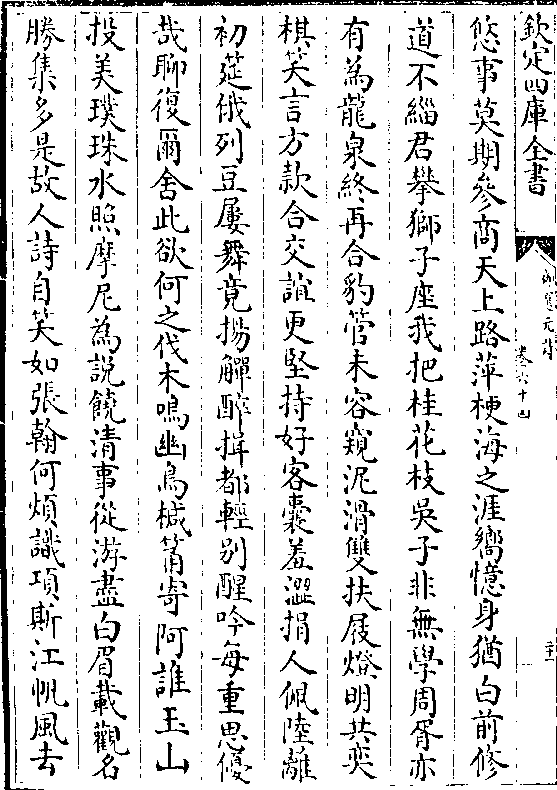 欽定四庫全書
卷六十四
悠事莫期參商天上路萍梗海之涯嚮憶身猶白前修
道不緇君攀獅子座我把桂花枝吳子非無學周胥亦
有為龍泉終再合豹管未容窺泥滑雙扶屐燈明共奕
棋笑言方款合交誼更堅持好客囊羞澀捐人佩陸離
初莚俄列豆屢舞竟揚觶醉揖都輕别醒吟每重思優
哉聊復爾舍此欲何之伐木鳴幽鳥椷筩寄阿誰玉山
投美璞珠水照摩尼為説饒清事從游盡白眉載觀名
勝集多是故人詩自笑如張翰何煩識項斯江帆風去